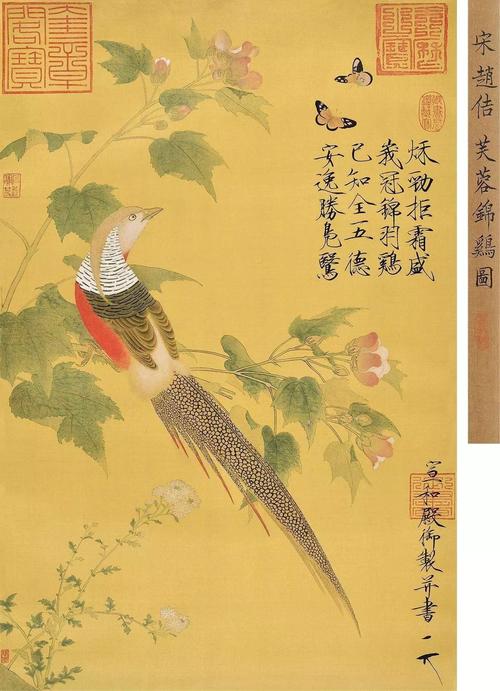 宋趙佶芙蓉錦鷄圖
奎章
閣寶
秋勁拒霜盛
峩冠錦羽鷄
已知全五德
安逸勝鳧鷖
宣和殿御製并書